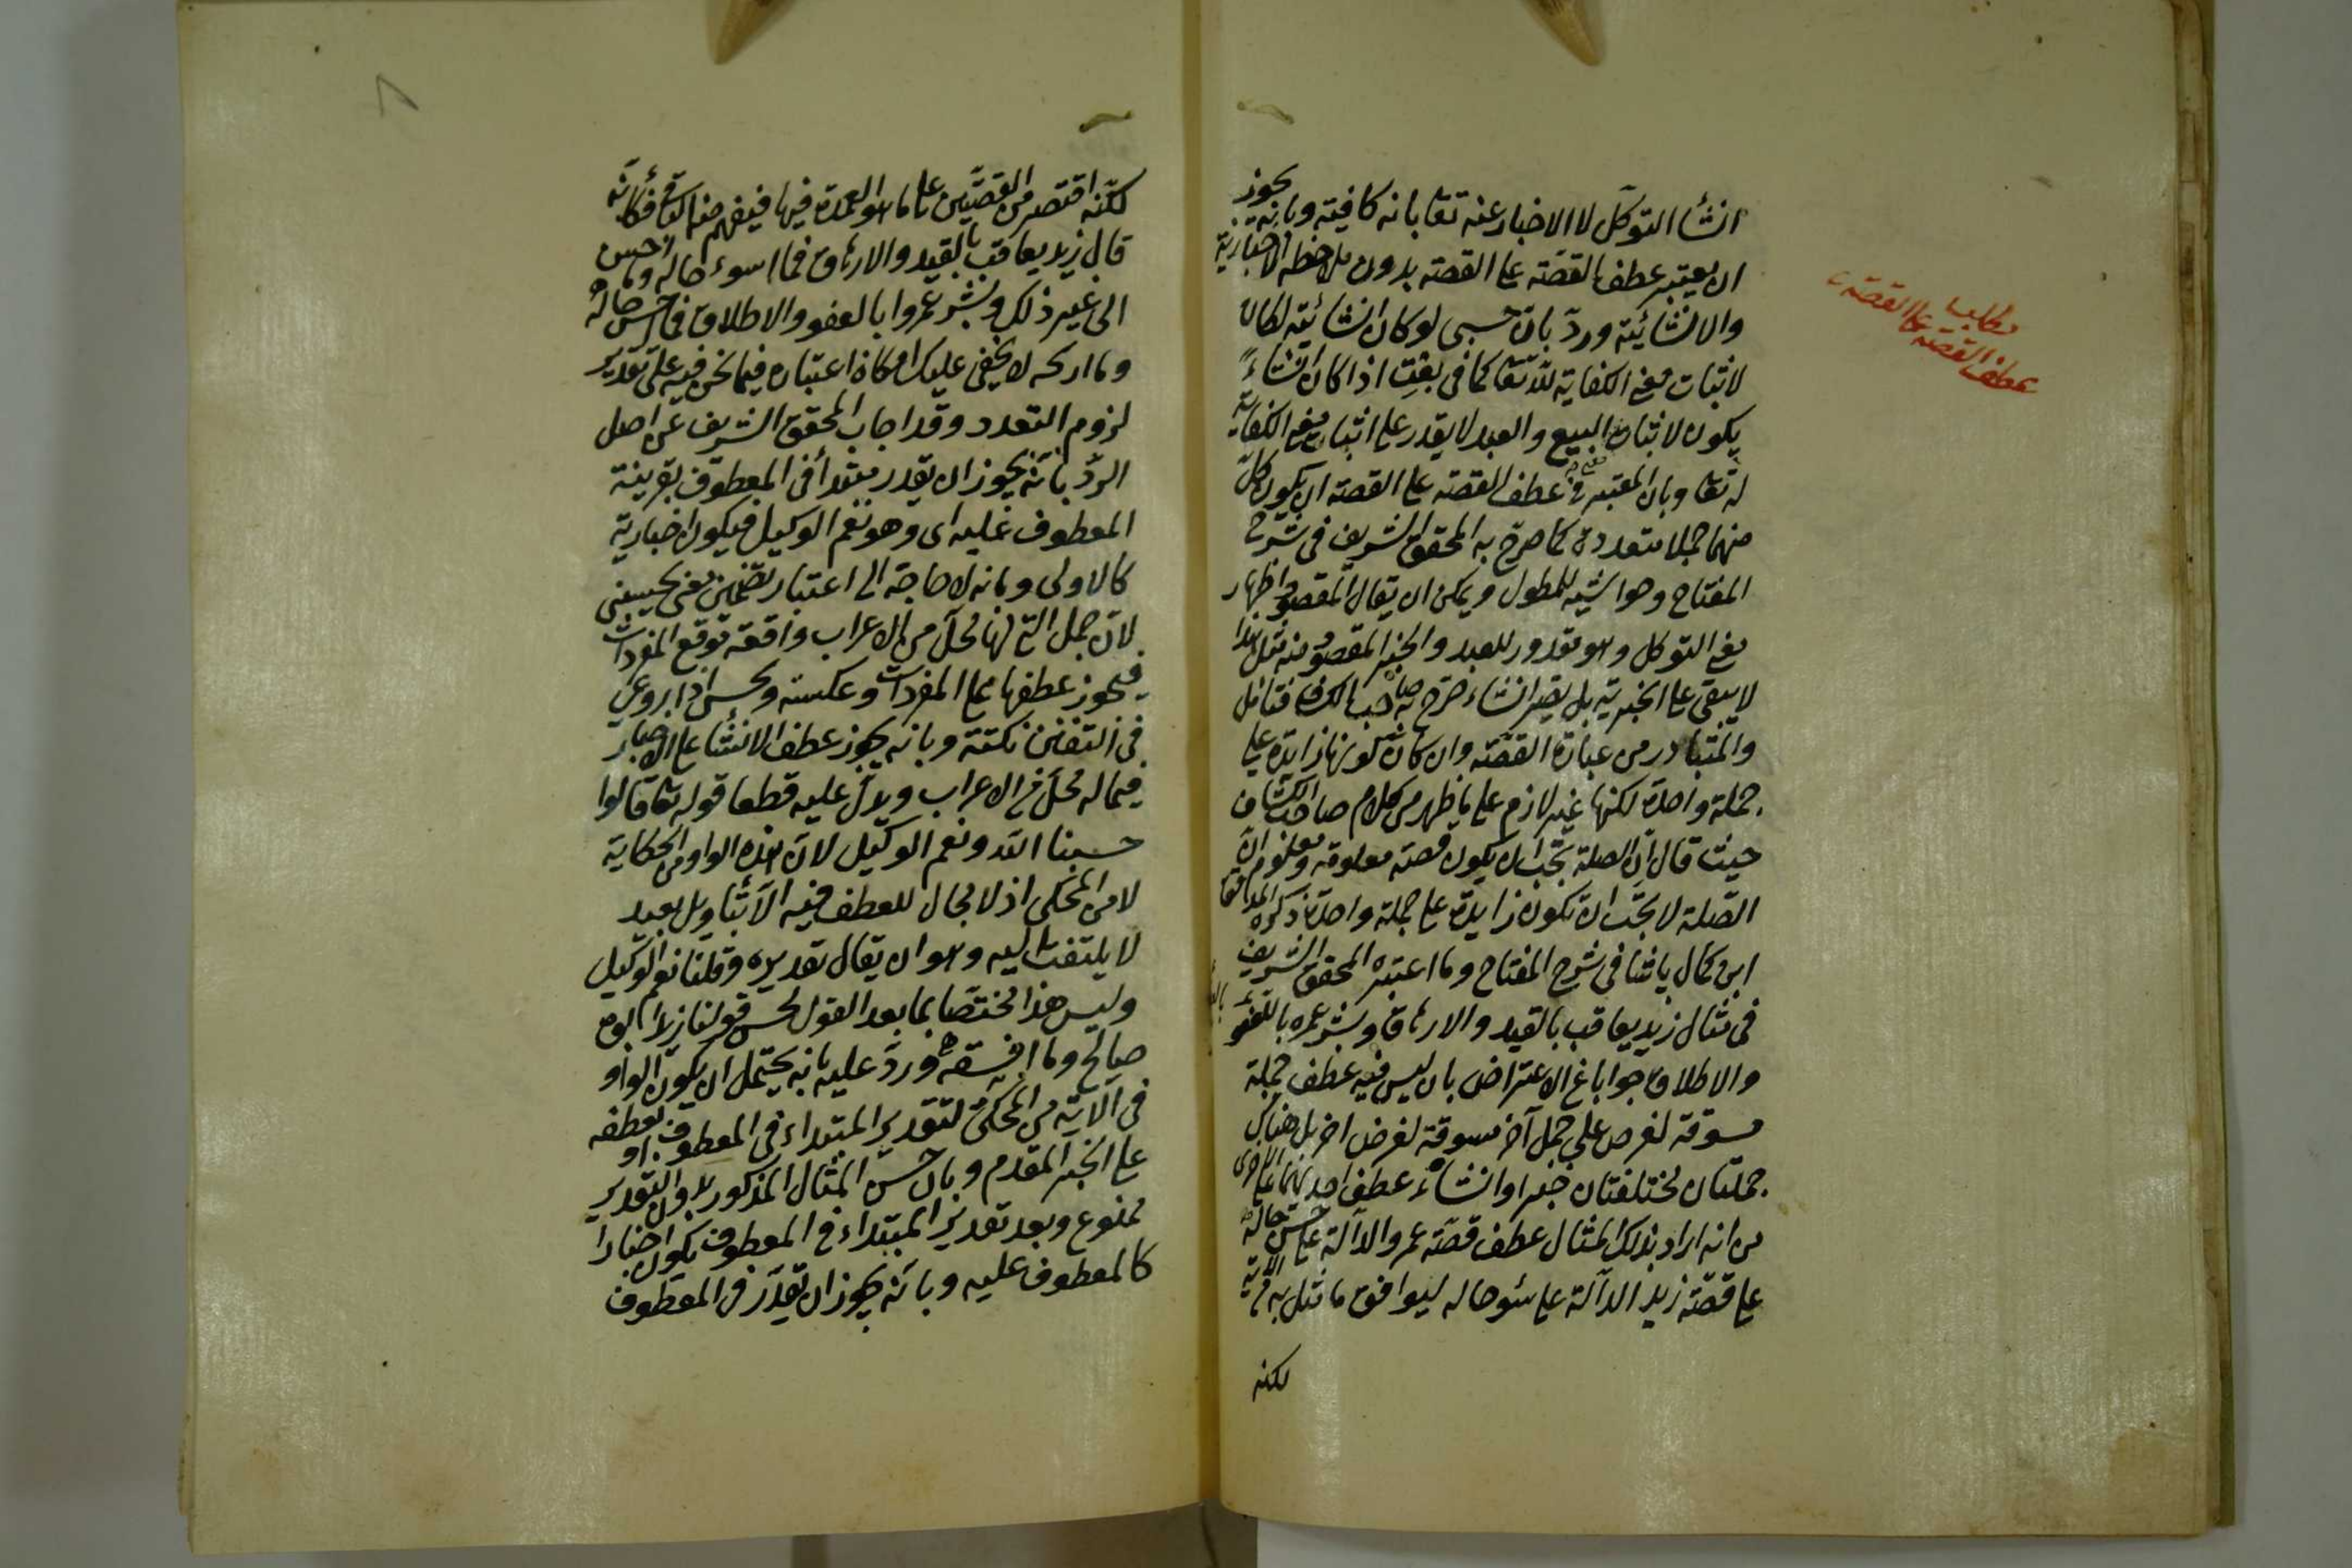 انشأ التوكل لا الاخبار عنه تعا بانه كافيه وبانه يجوز
ان يعتبر عطف القصّة على القصة بدون ملاحظة الاخبارية
والانشائية وردّ بان حسبى لو كان انشائية لكان
لاثبات معنى الكفاية لله تعا كما فى بعت اذا كان انشاءً
يكون لاثبات البيع والعبد لا يقدر على اثبات معنى الكفاية
له تعا وبان المعتبر فى عطف القصة على القصة ان يكون كلّ
منهما جملا متعددة كما صرح به المحقق الشريف فى شرح
المفتاح وحواشيه للمطول ويمكن ان يقال المقصود اظهار
معنى التوكل وهو مقدور للعبد والخبر المقصود منه مثل هذا
لا يبقى على الخبرية بل يصير انشاء صرّح به صاحب الكشاف فتامل
والمتبادر من عبارة القصّة وان كان كونها زايدة على
جملة واحدة لكنها غير لازم على ما ظهر من كلام صاحب الكشاف
حيث قال ان الصلة يجب ان يكون قصة معلومة ومعلوم انّ
الصّلة لا يجب ان تكون زايدة على جملة واحدة ذكره المولى
ابن كمال پاشا فى شرح المفتاح وما اعتبره المحقق الشريف
فى مثال زيد يعاقب بالقيد والارهاق وبشر عمرا بالعفو
والاطلاق جوابا عن الاعتراض بان ليس فيه عطف جملة
مسوقة لغرض على جمل آخر مسوقة لغرض اخر بل هناك
جملتان مختلفتان خبرا وانشاء عطف احديهما على الاخرى
من انه اراد بذلك المثال عطف قصّة عمرو الدالة على حسن حاله
على قصّة زيد الدالة على سوء حاله ليوافق ما مثل به من الاية
لكنه
مطلب
عطف القصة على القصة
لكنّه اقتصر من القصّتين على ما هو العمدة فيها فيفهم منه فكانّه
قال زيد يعاقب بالقيد والارهاق فما اسوء حاله وما احسن
الى غير ذلك وبشر عمروا بالعفو والاطلاق فما احسن حاله
وما اربحه لا يخفى عليك امكان اعتباره فيما نحن فيه على تقدير
لزوم التعدد وقد اجاب المحقق الشريف عن اصل
الردّ بانّه يجوز ان يقدر مبتدأ فى المعطوف بقرينة
المعطوف عليه اى وهو نعم الوكيل فيكون اخبارية
كالاولى وبانه لا حاجة الى اعتبار تضمين معنى يحسبنى
لان جمل التى لها محل من الاعراب واقعة موقع المفردات
فيجوز عطفها على المفردات وعكسه ويحسن اذا روعى
فى التفنن نكتة وبانه يجوز عطف الانشأ على الاخبار
فيما له محل من الاعراب ويدل عليه قطعا قوله تعا قالوا
حسبنا الله ونعم الوكيل لان هذه الواو من الحكاية
لا من المحكى اذ لا مجال للعطف فيه الا بتأويل بعيد
لا يلتفت اليه وهو ان يقال تقديره وقلنا نعم الوكيل
وليس هذا مختصّا بما بعد القول لحسن قولنا زيد ابوه
صالح وما افسقه وردّ عليه بانه يحتمل ان يكون الواو
فى الاية من المحكى لتقدير المبتداء فى المعطوف او لعطفه
على الخبر المقدم وبان حسن المثال المذكور بدون التقدير
ممنوع وبعد تقدير المبتداء فى المعطوف يكون اخبارا
كالمعطوف عليه وبانّه يجوز ان يقدّر فى المعطوف